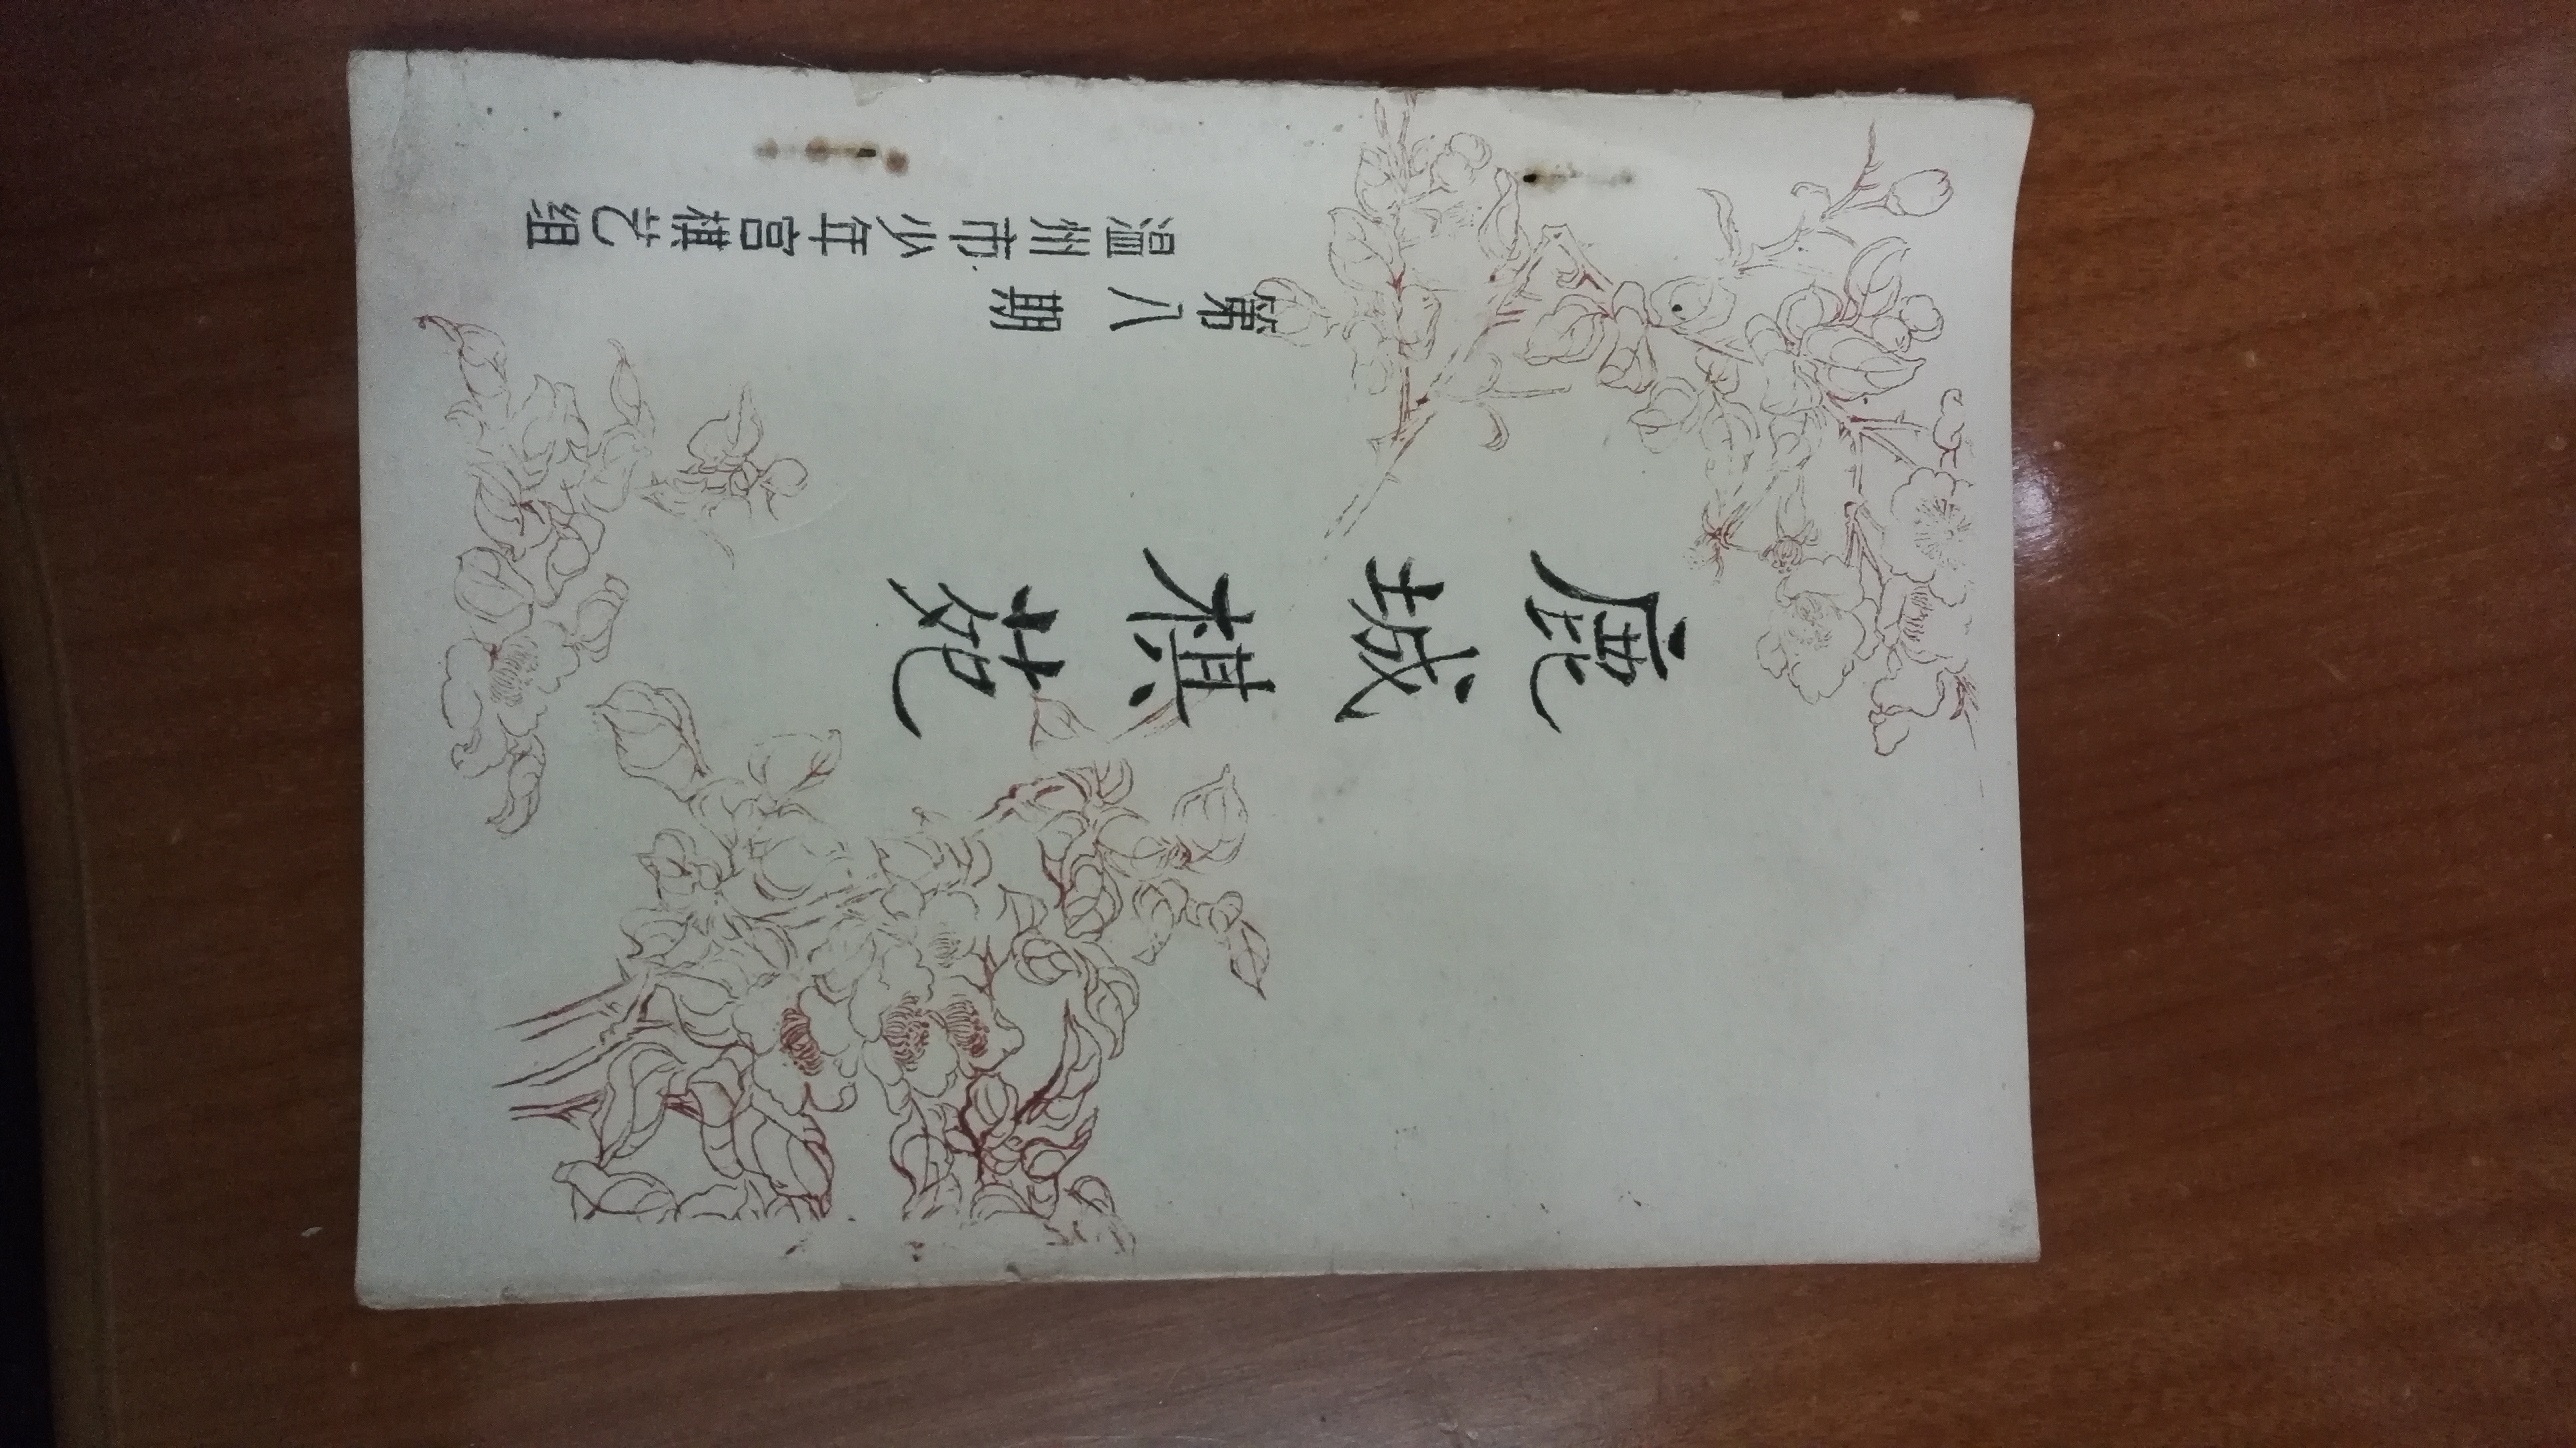 鹿城棋苑
第八期
温州市少年宫棋艺组